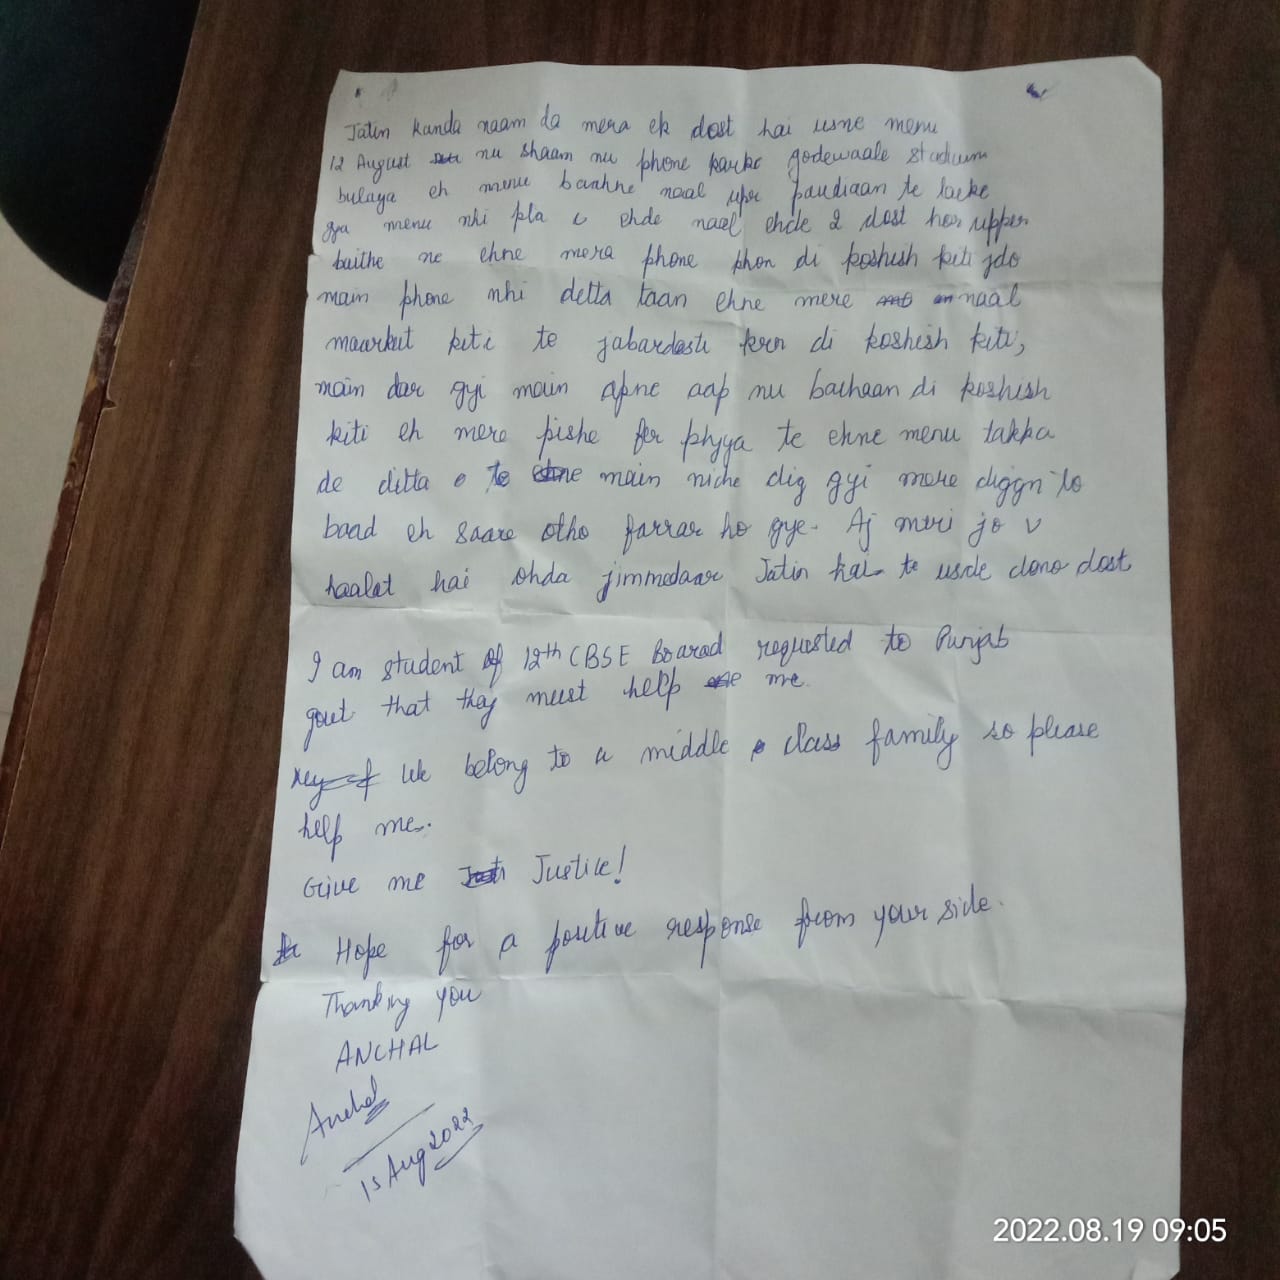 Jatin kanda naam da mera ek dost hai usne menu
12 August nu shaam nu phone karke godewaale stadium
bulaya eh menu baahne naal uper paudiaan te lacke
gya menu nhi pta c ehde naal ehde 2 dost hor upper
baithe ne ehne mera phone phon di koshish kiti jdo
main phone nhi detta taan ehne mere naal
maarkut kiti te jabardasti krn di koshish kiti,
main dar gyi main apne aap nu bachaan di koshish
kiti eh mere pishe fer phjya te ehne menu takka
de ditta te main niche dig gyi mere diggn to
baad eh saare otho farrar ho gye. Aj meri jo v
haalat hai ohda jimmedaar Jatin hai te usde dono dost
I am student of 12th CBSE Boarad requested to Punjab
govt that they must help me.
We belong to a middle class family so please
help me.
Give me Justice!
Hope for a positive response from your side.
Thanking you
ANCHAL
Anchal
15 Aug 2022
2022.08.19 09:05